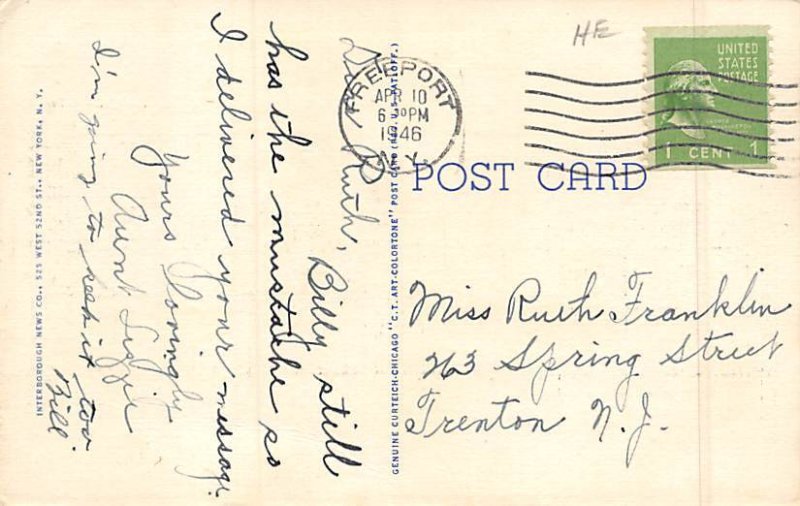 HE
UNITED
STATES
POSTAGE
1 CENT 1
FREEPORT
APR 10
6 30 PM
1946
N.Y.
POST CARD
Dear Ruth,
Billy still
has the mustache so
I delivered your message.
Yours lovingly
Aunt Lizzie
I'm going to keep it too.
Bill
Miss Ruth Franklin
263 Spring Street
Trenton N.J.
GENUINE CURTEICH-CHICAGO "C.T. ART-COLORTONE" POST CARD (REG. U.S. PAT. OFF.)
INTERBOROUGH NEWS CO., 525 WEST 52ND ST., NEW YORK, N. Y.